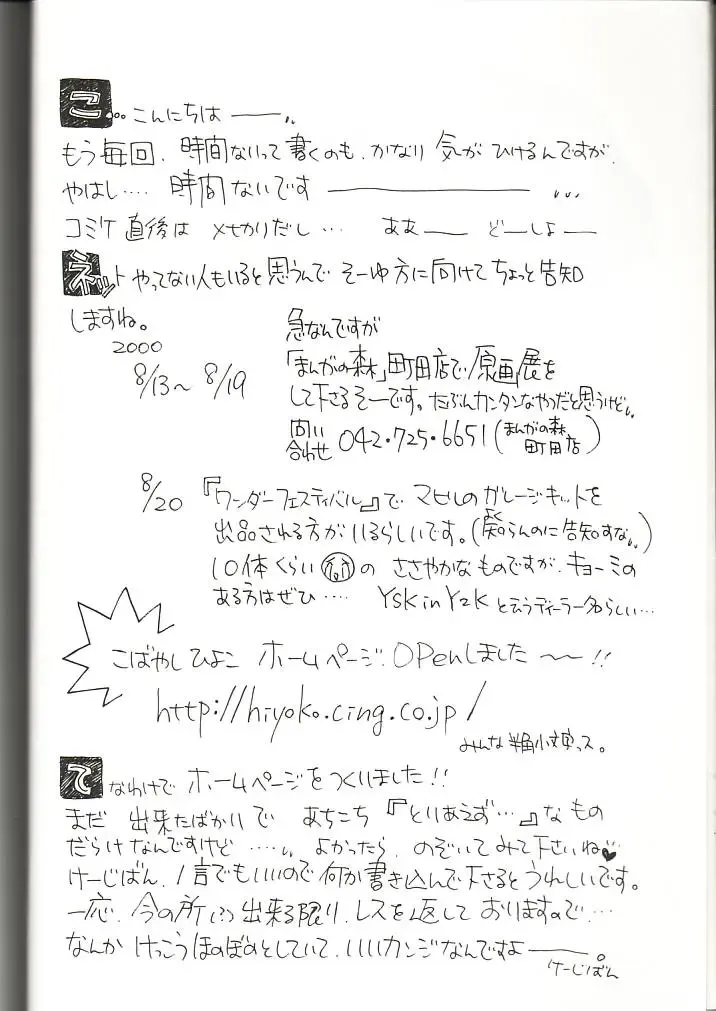 こ…こんにちは――…
もう毎回、時間ないって書くのも、かなり気がひけるんですが、
やはし…‥時間ないです――――――…
コミケ直後は メ切りだし… ああ―― ど―しよ―
ネット やってない人もいると思うんで そーゆ方に向けてちょっと告知
しますね。
2000
8/13〜 8/19
急なんですが
「まんがの森」町田店で「原画」展を
して下さるそーです。たぶんカンタンなやつだと思うけど…
問い合わせ 042・725・6651(まんがの森町田店)
8/20 『ワンダーフェスティバル』で マヒルのガレージキットを
出品される方がいるらしいです。(よく知らんのに告知すな…)
10体くらいの ささやかなものですが、キョーミの
ある方はぜひ…‥ YSK in Y2K と云うディーラー名らしい…
こばやしひよこ ホームページ OPenしました〜〜!!
http://hiyoko.cing.co.jp/
みんな半角小文字っス。
てなわけで ホームページをつくりました!!
まだ 出来たばかりで あちこち『とりあえず…』なもの
だらけなんですけど ‥‥… よかったら、のぞいてみて下さいね♥
けーじばん、1言でもいいので何か書き込んで下さるとうれしいです。
一応、今の所は 出来る限り、レスを返しておりますので、…
なんか けっこうほのぼのとしていて、いいカンジなんですよ――。
けーじばん